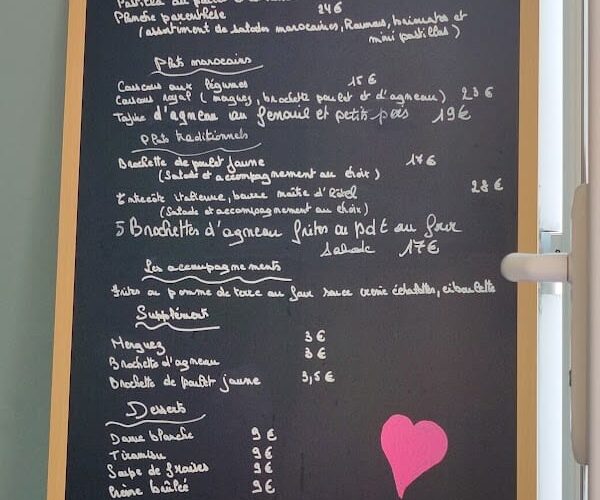 Pastilla au poulet
Planche parenthèse 24€
(assortiment de salades marocaines, Houmous, briouates et
mini pastillas)
Plats marocains
Couscous aux légumes 15€
Couscous royal (merguez, brochette poulet et d'agneau) 23€
Tajine d'agneau au fenouil et petits pois 19€
Plats traditionnels
Brochette de poulet jaune 17€
(Salade et accompagnement au choix)
Entrecôte italienne, beurre maître d'hôtel 28€
(Salade et accompagnement au choix)
5 Brochettes d'agneau frites ou pdt au four
Salade 17€
Les accompagnements
frites ou pomme de terre au four sauce creme échalottes, ciboulette
Supplément
Merguez 3€
Brochette d'agneau 3€
Brochette de poulet jaune 3,5€
Desserts
Dame blanche 9€
Tiramisu 9€
Soupe de fraises 9€
Crème brûlée 9€